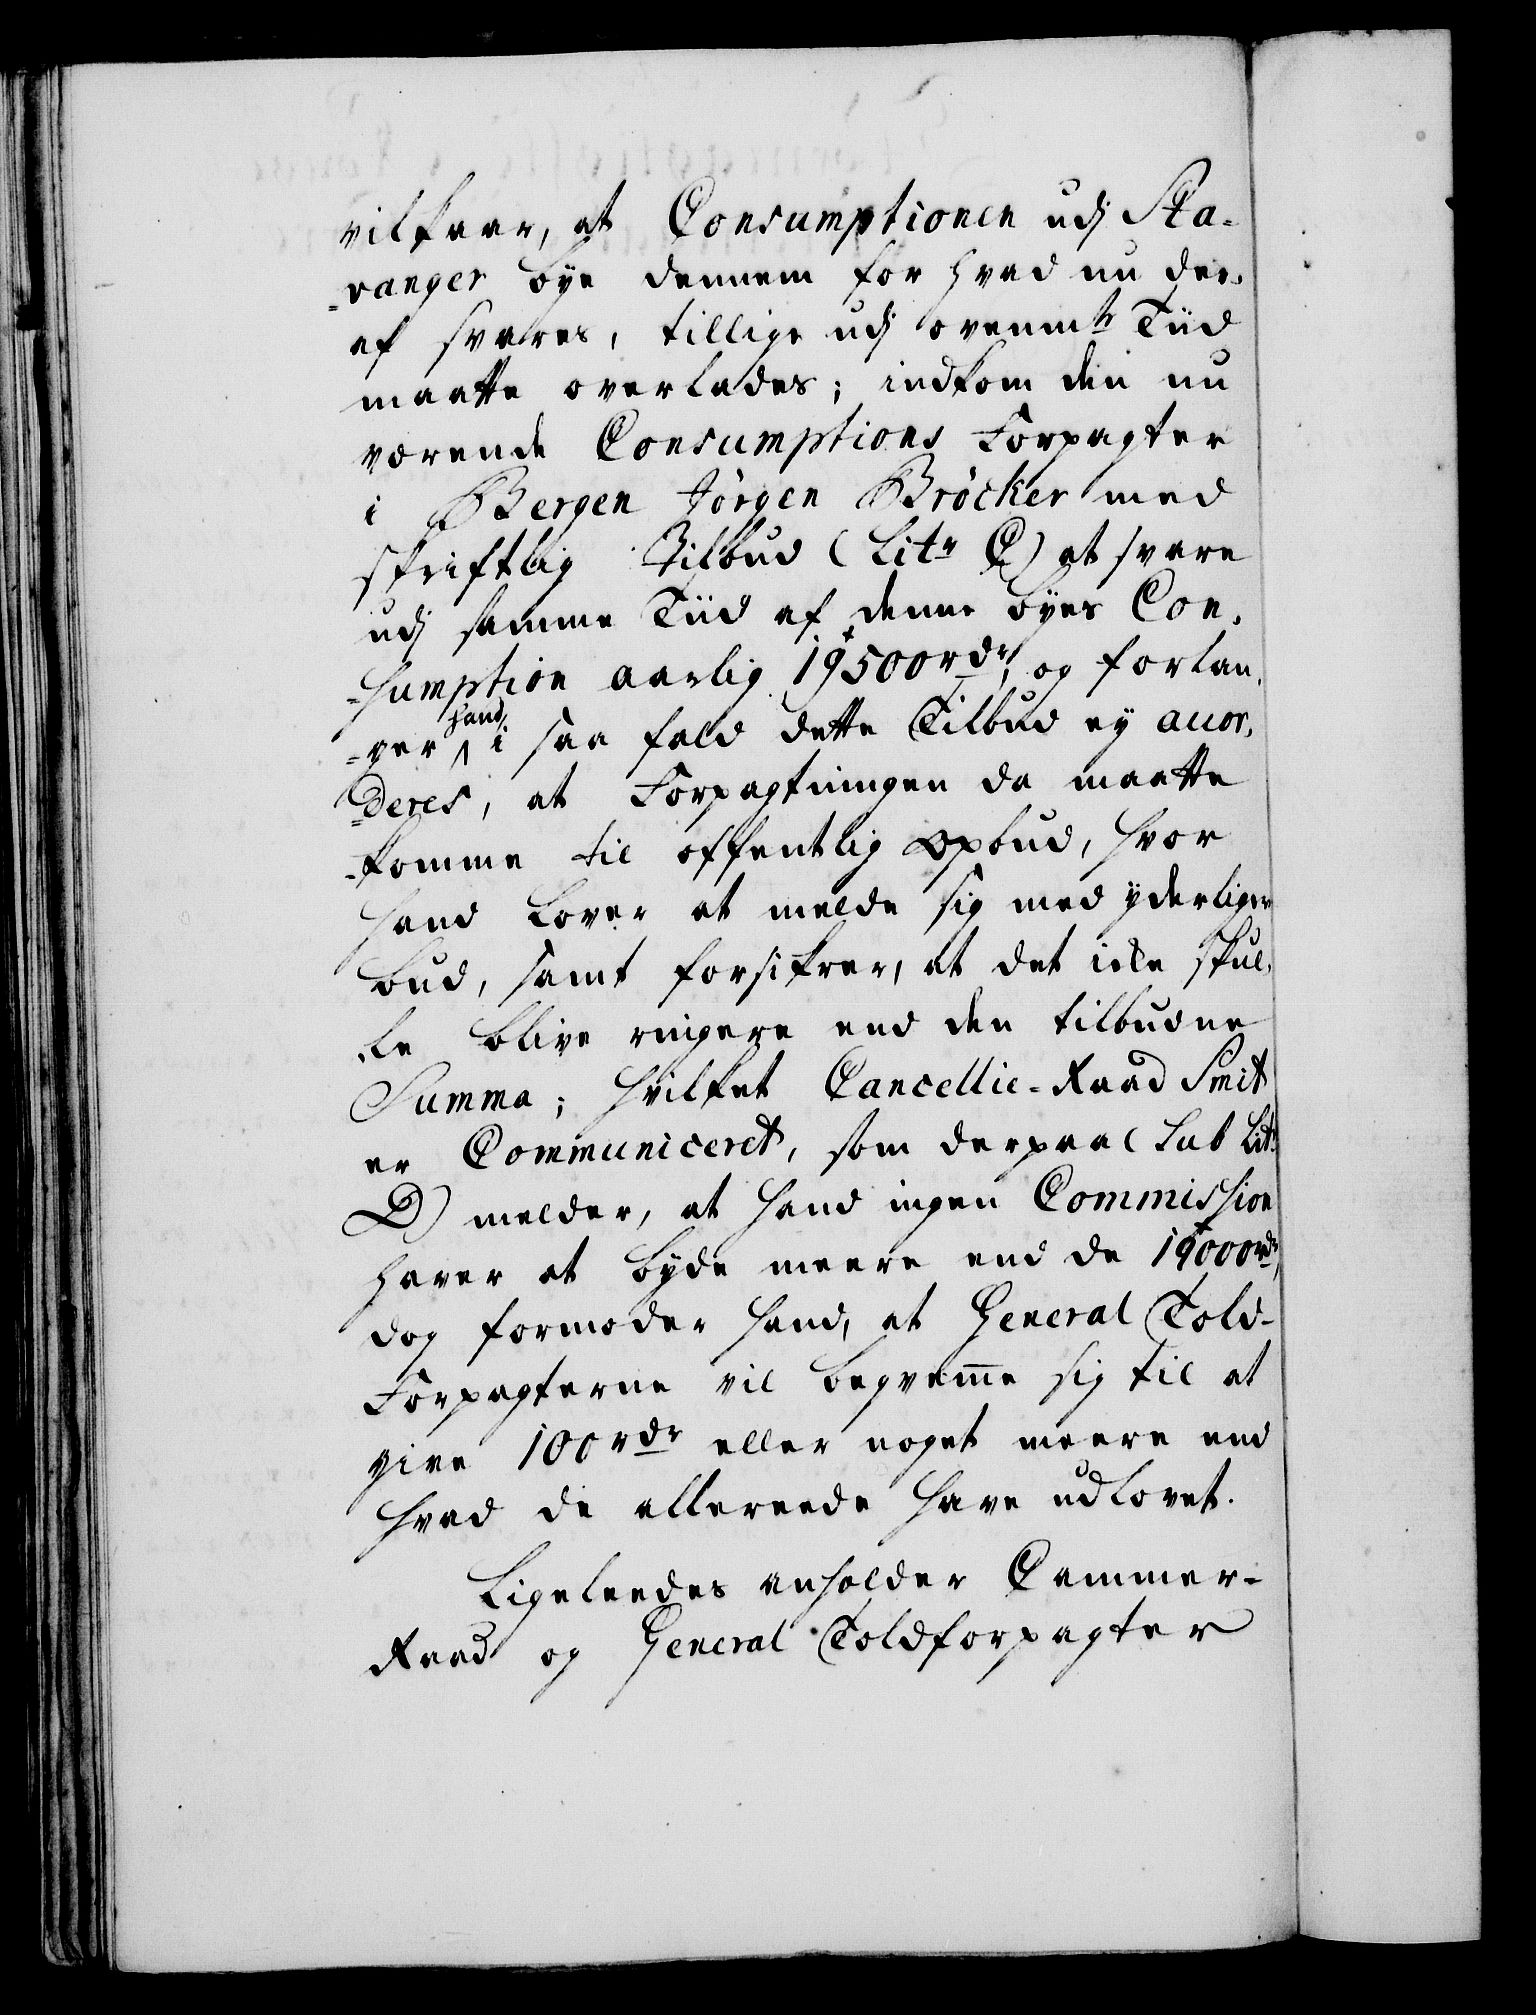 vilkaar, at Consumptionen udj Sta-
-vanger bye dennem for hvad nu der-
af svares, tillige udj ovenmte Tiid
maatte overlades; indkom den nu
værende Consumptions Forpagter
i Bergen Jörgen Bröcker med
skriftlig Tilbud (Litr C) at svare
udj samme Tiid af denne byes Con-
-sumption aarlig 19500 rdr, og forlan-
-ger hand, i saa fald dette Tilbud ey accor-
-deres, at Forpagtningen da maatte
-komme til offentlig opbud, hvor
hand lover at melde sig med yderligere
bud, samt forsikrer, at det icke skul-
-le blive ringere end den tilbudne
Summa; hvilket Cancellie-Raad Smit
er Communiceret, som derpaa (sub Litr
D) melder, at hand ingen Commission
haver at byde meere end de 19000 rdr,
dog formoder hand, at General Told-
Forpagterne vil beqvem̄e sig til at
give 100 rdr eller noget meere end
hvad de allereede have udlovet.
Ligeleedes anholder Cammer-
Raad og General Toldforpagter